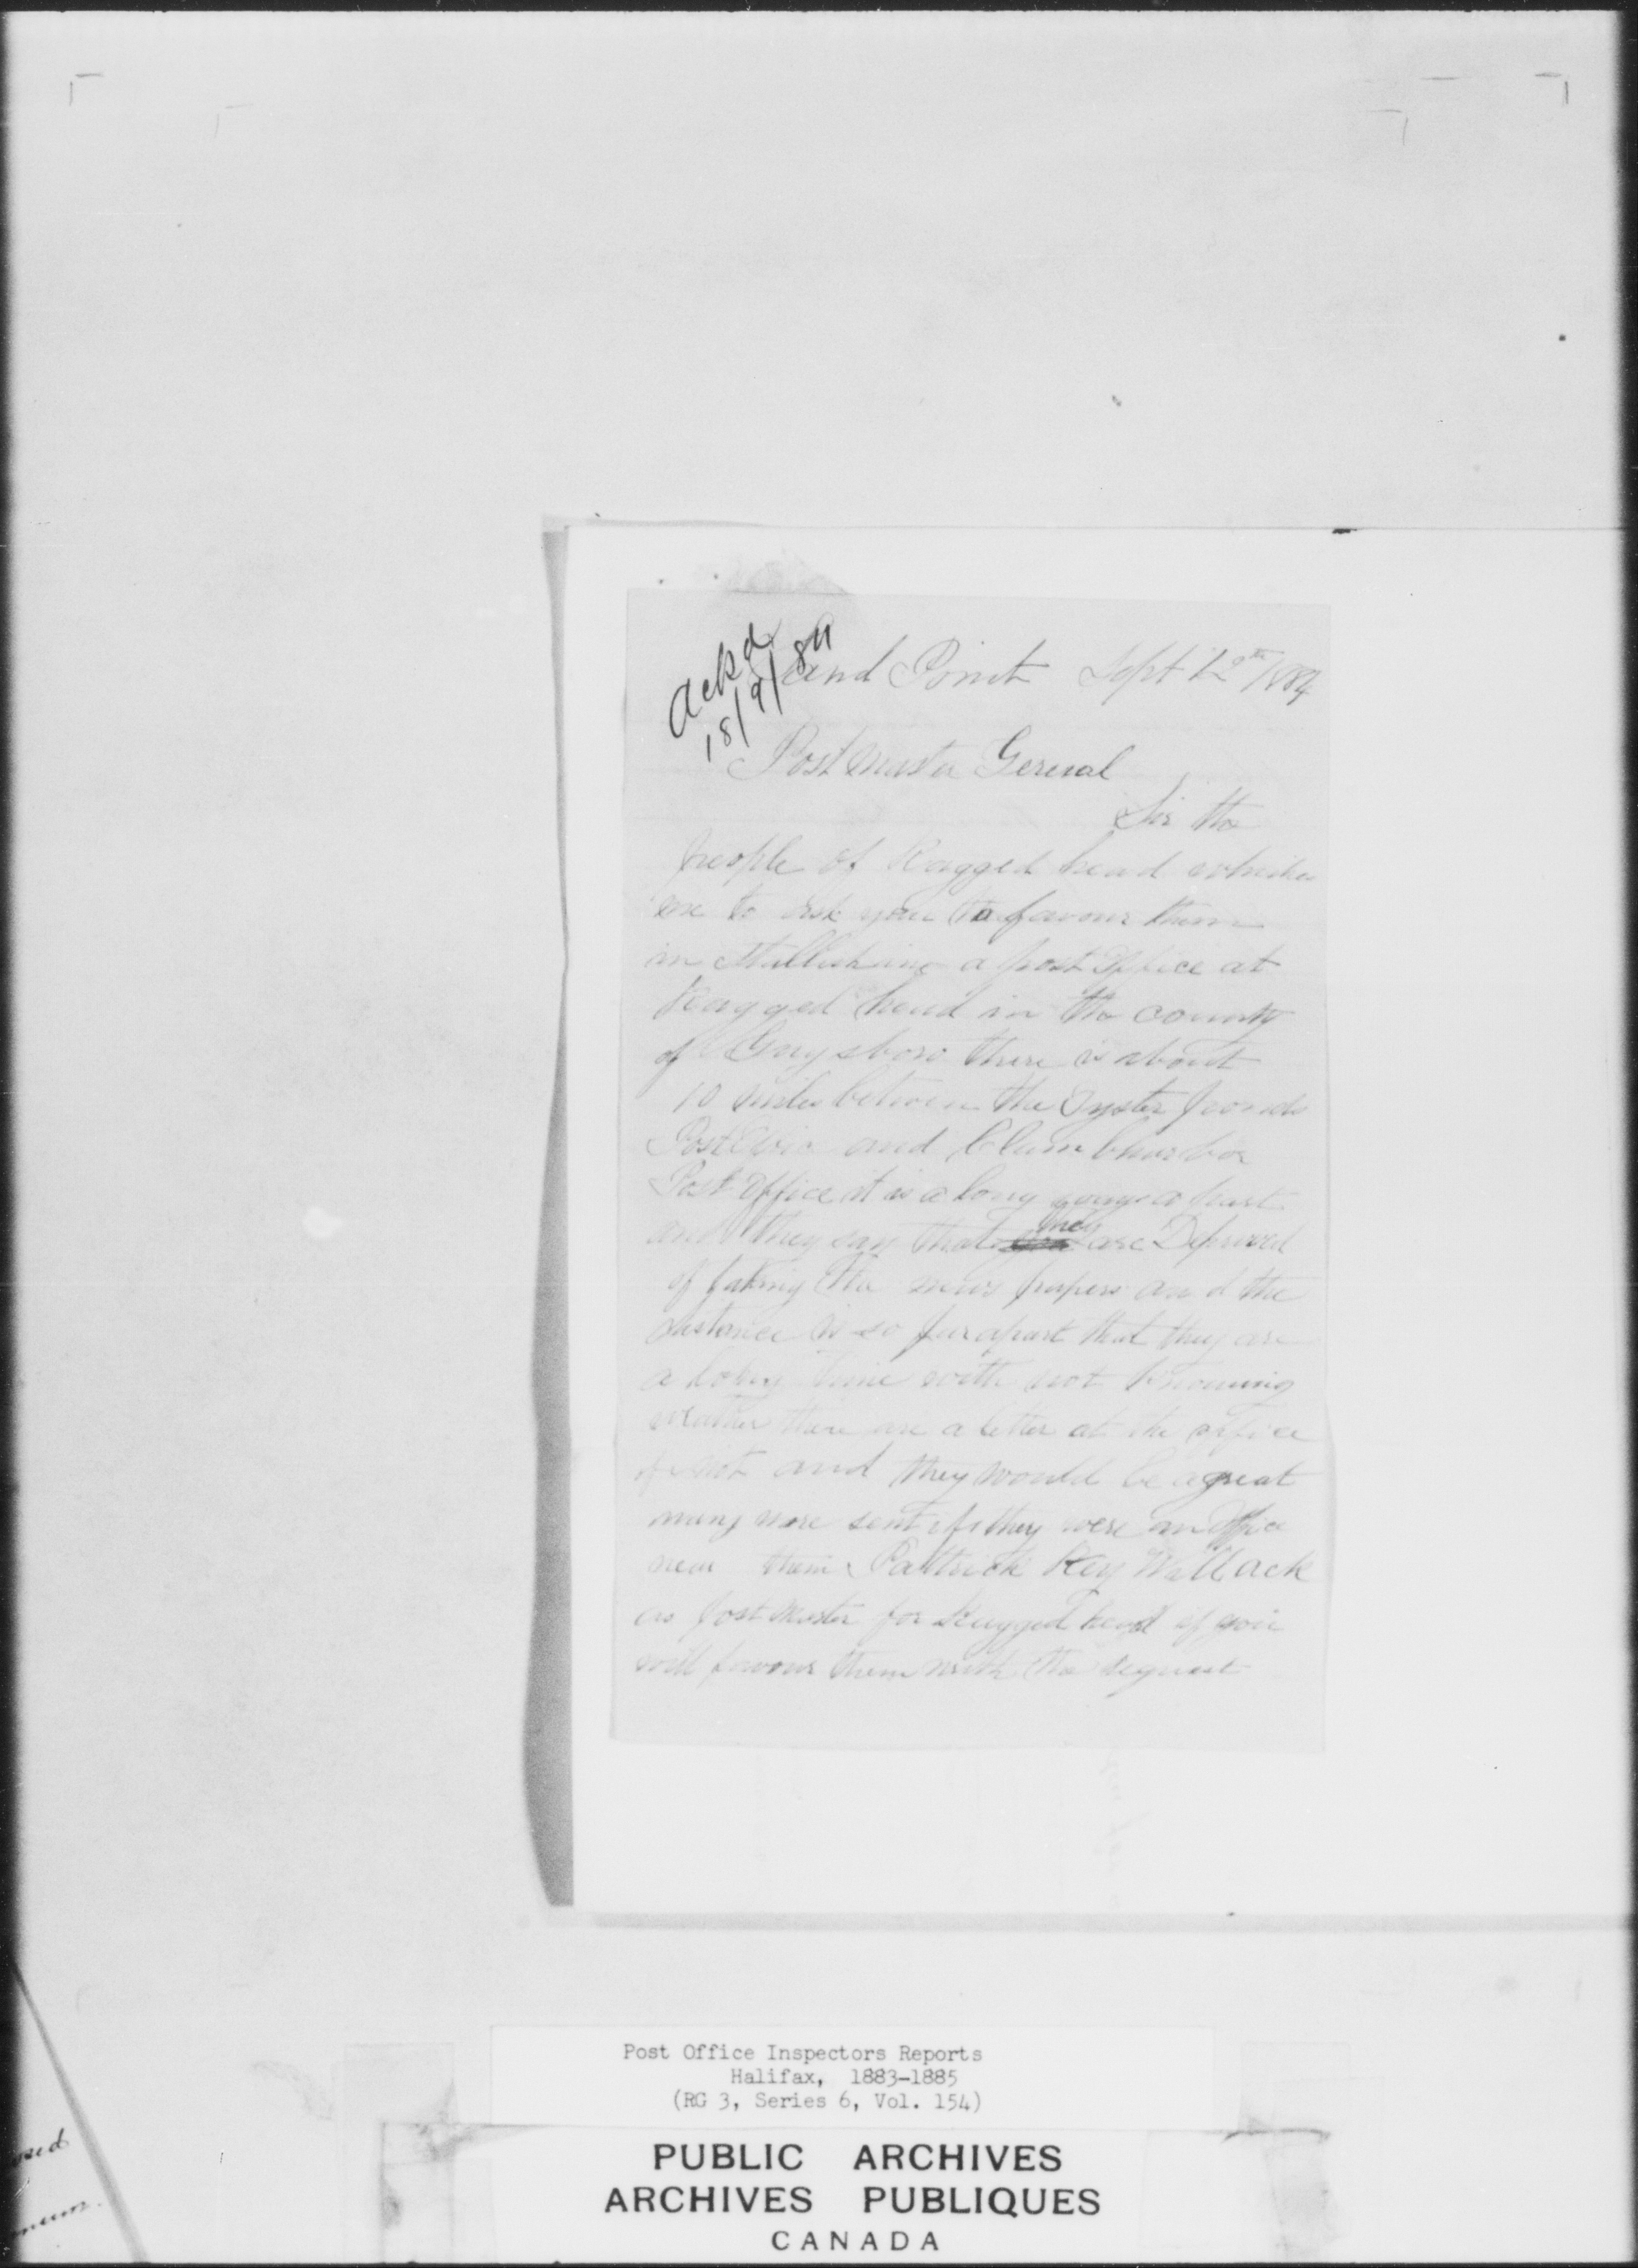 Ackd
18/9/84
Sand Point Sept 12th/1884
Post Master Gereral
Sir the
people of Ragged head whishes
me to ask you to favour them
in a post Office at
Ragged head in the county
of Guysboro there is about
10 miles between the Oyster ponds
Post and Clam harbor
Post Office it is a long ways a part
and they say that they are Deprived
of taking the news papers and the
distance is so far apart that they are
a long time with not knowing
weather there are a letter at the office
or not and they would be a great
many more sent if they were an Office
near them Pattrick Key Wallack
as post Master for Ragged head if you
will favour them with the request
Post Office Inspectors Reports
Halifax, 1883-1885
(RG 3, Series 6, Vol. 154)
PUBLIC ARCHIVES
ARCHIVES PUBLIQUES
CANADA